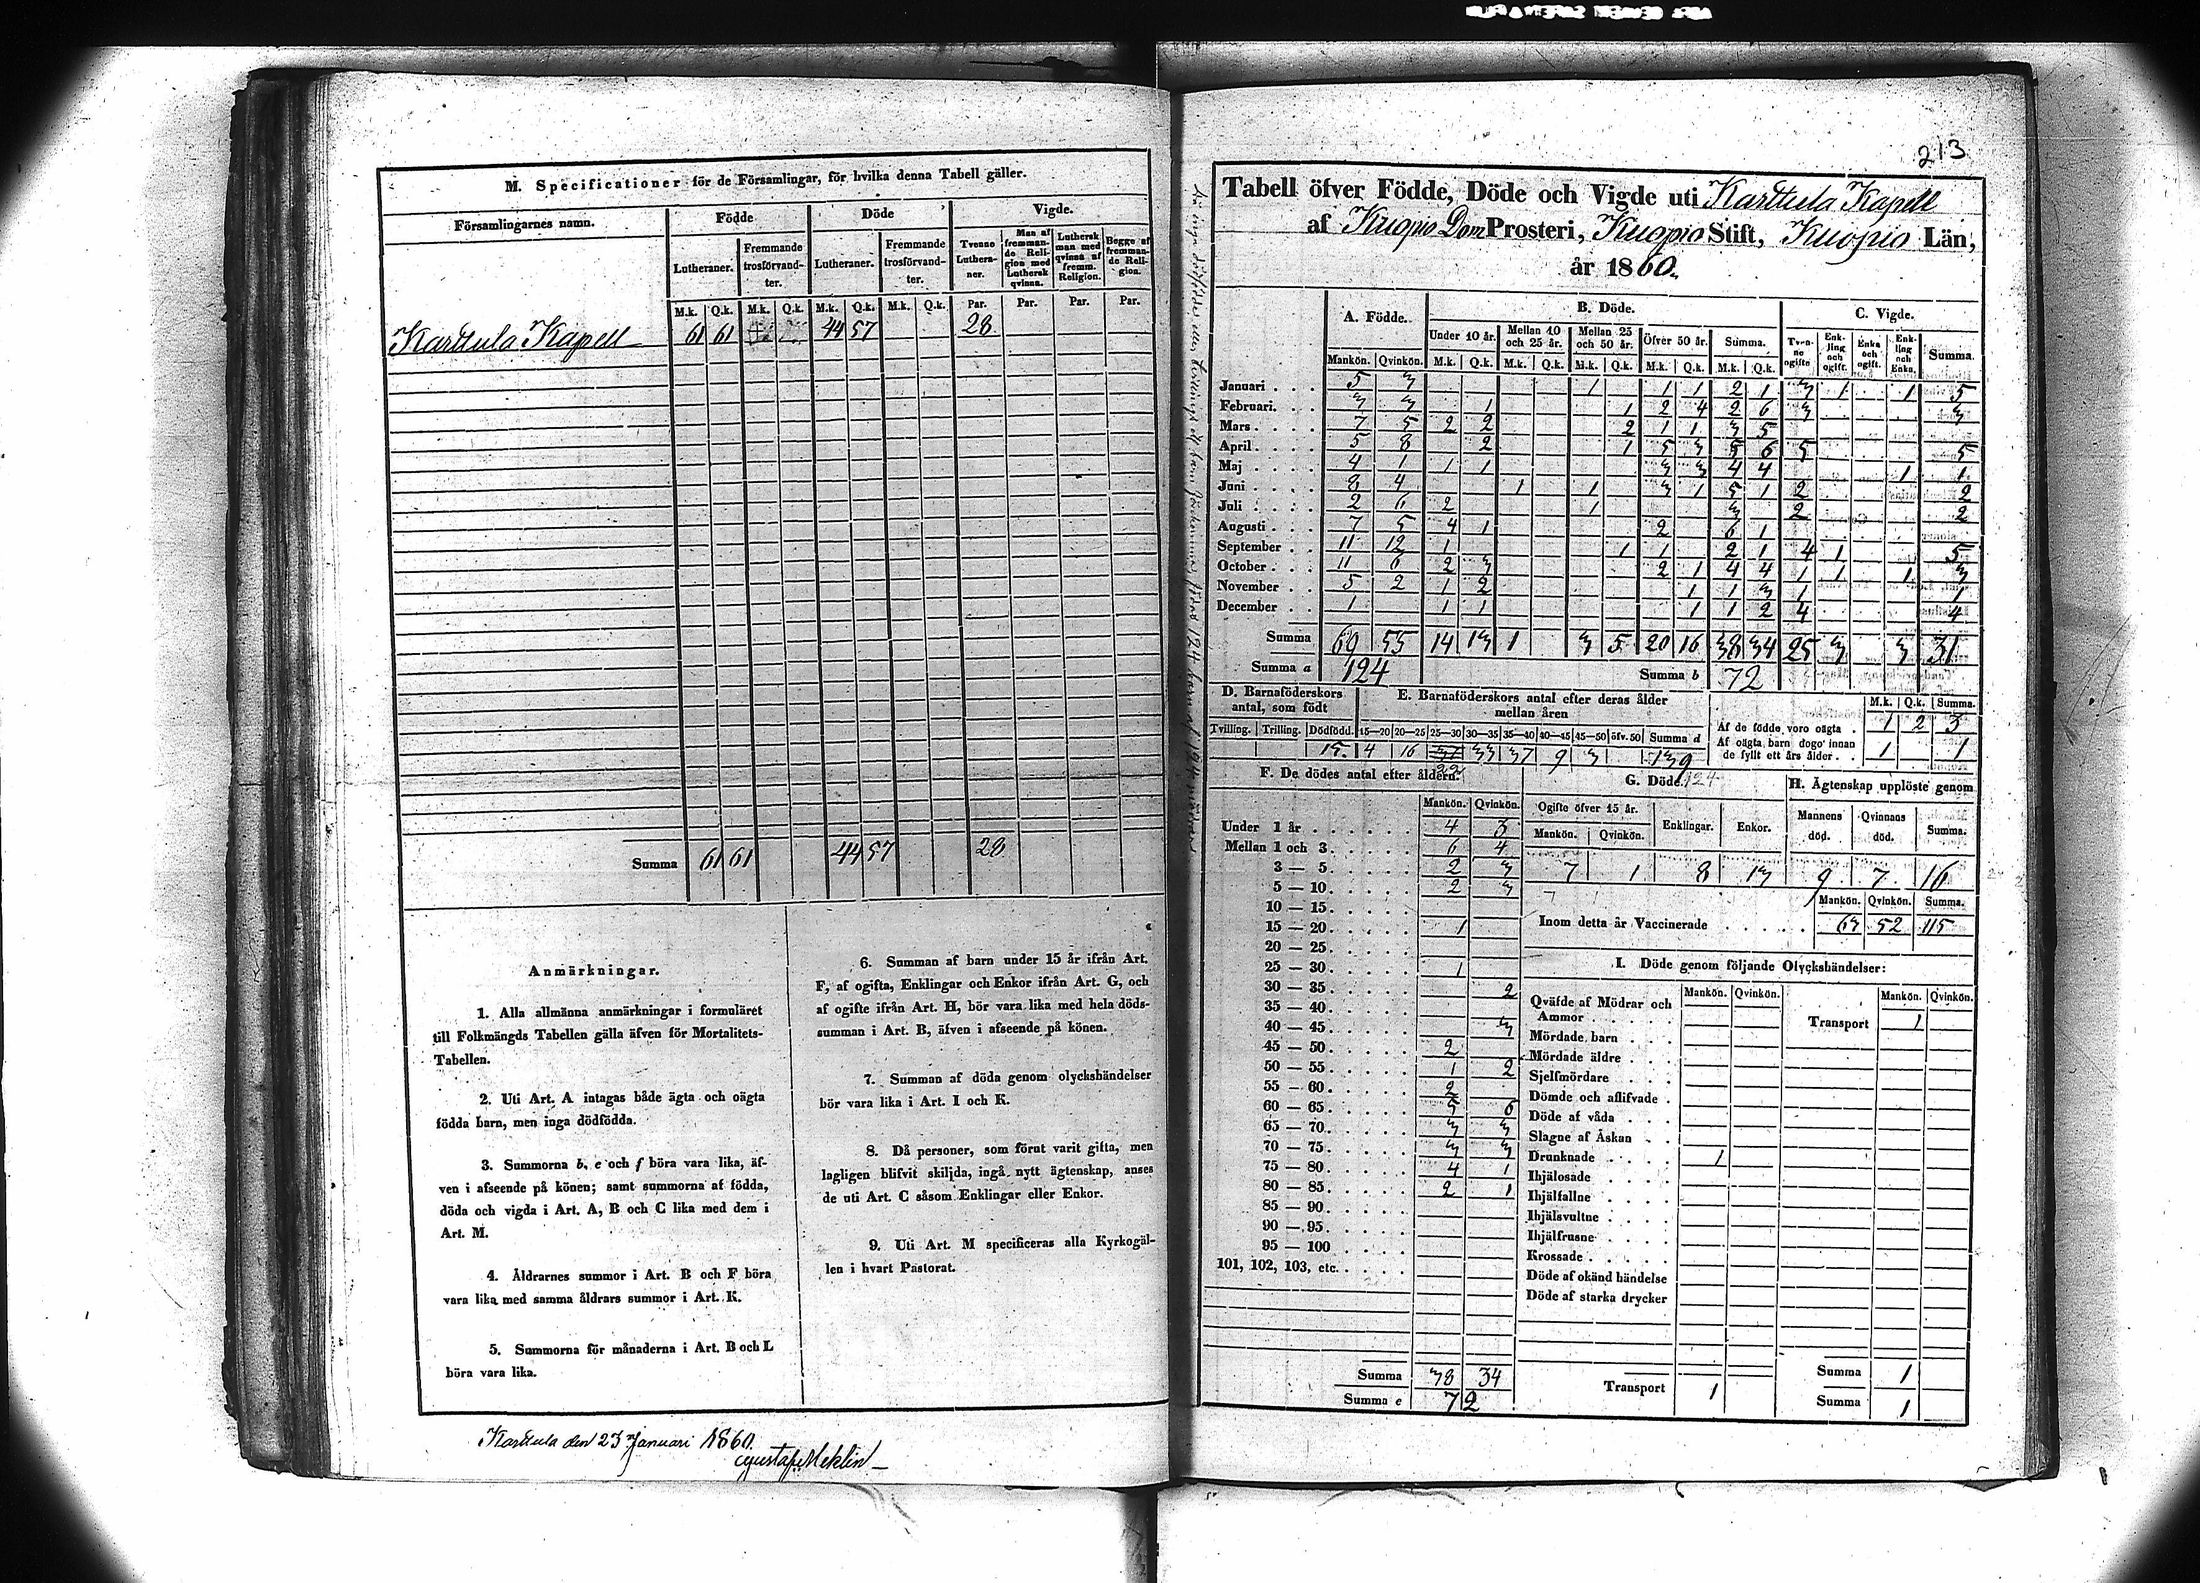 M. Specificationer för de Församlingar, för hvilka denna Tabell gäller.
Församlingarnes namn. Födde Döde Vigde.
Lutheraner. Fremmande trosförvandter. Lutheraner. Fremmande trosförvandter. Tvenne Lutheraner. Man af fremmande Religion med Luthersk qvinna. Luthersk man med qvinna af fremm. Religion. Begge af fremmande Religion.
M.k. Q.k. M.k. Q.k. M.k. Q.k. M.k. Q.k. Par. Par. Par. Par.
Karttula Kapell 61 61 44 57 28
Summa 61 61 44 57 28
Anmärkningar.
1. Alla allmänna anmärkningar i formuläret
till Folkmängds Tabellen gälla äfven för Mortalitets-
Tabellen.
2. Uti Art. A intagas både ägta och oägta
födda barn, men inga dödfödda.
3. Summorna b, e och f böra vara lika, äf-
ven i afseende på könen; samt summorna af födda,
döda och vigda i Art. A, B och C lika med dem i
Art. M.
4. Åldrarnes summor i Art. B och F böra
vara lika med samma åldrars summor i Art. K.
5. Summorna för månaderna i Art. B och L
böra vara lika.
6. Summan af barn under 15 år ifrån Art.
F, af ogifta, Enklingar och Enkor ifrån Art. G, och
af ogifte ifrån Art. H, bör vara lika med hela döds-
summan i Art. B, äfven i afseende på könen.
7. Summan af döda genom olyckshändelser
bör vara lika i Art. I och K.
8. Då personer, som förut varit gifta, men
lagligen blifvit skiljda, ingå nytt ägtenskap, anses
de uti Art. C såsom Enklingar eller Enkor.
9. Uti Art. M specificeras alla Kyrkogäl-
len i hvart Pastorat.
Karttula den 23 Januari 1860.
Gustaf Meklin
213
Tabell öfver Födde, Döde och Vigde uti Karttula Kapell
af Kuopio Dom Prosteri, Kuopio Stift, Kuopio Län,
år 1860.
A. Födde. B. Döde. C. Vigde.
Under 10 år. Mellan 10 och 25 år. Mellan 25 och 50 år. Öfver 50 år. Summa. Tvenne ogifte Enkling och ogift. Enka och ogift. Enkling och Enka. Summa.
Mankön. Qvinkön. M.k. Q.k. M.k. Q.k. M.k. Q.k. M.k. Q.k. M.k. Q.k.
Januari 5 3 1 1 1 2 1 3 1 1 5
Februari 3 3 1 1 2 4 2 6 3 3
Mars 7 5 2 2 2 1 1 3 5
April 5 8 2 1 5 3 5 6 5 5
Maj 4 1 1 1 3 3 4 4 1 1
Juni 8 4 1 1 3 1 5 1 2 2
Juli 2 6 2 1 3 2 2
Augusti 7 5 4 1 2 6 1
September 11 12 1 1 1 2 1 4 1 5
October 11 6 2 3 2 1 4 4 1 1 1 3
November 5 2 1 2 1 1 3 1 1
December 1 1 1 1 1 2 4 4
Summa 69 55 14 13 1 3 5 20 16 38 34 25 3 3 31
Summa a 124 Summa b 72
D. Barnaföderskors antal, som födt
E. Barnaföderskors antal efter deras ålder mellan åren
Tvilling. Trilling. Dödfödd. 15—20 20—25 25—30 30—35 35—40 40—45 45—50 öfv. 50 Summa d
15 4 16 22 33 37 9 3 139
124
M.k. Q.k. Summa.
Af de födde voro oägta 1 2 3
Af oägta barn dogo innan de fyllt ett års ålder 1 1
F. De dödes antal efter åldern.
Mankön. Qvinkön.
Under 1 år 4 3
Mellan 1 och 3 6 4
3 — 5 2 3
5 — 10 2 3
10 — 15
15 — 20 1
20 — 25
25 — 30 1
30 — 35 2
35 — 40
40 — 45 3
45 — 50 2
50 — 55 1 2
55 — 60 2
60 — 65 5 6
65 — 70 3 3
70 — 75 3 3
75 — 80 4 1
80 — 85 2 1
85 — 90
90 — 95
95 — 100
101, 102, 103, etc.
Summa 38 34
Summa e 72
G. Döde.
Ogifte öfver 15 år. Enklingar. Enkor.
Mankön. Qvinkön.
7 1 8 13
H. Ägtenskap upplöste genom
Mannens död. Qvinnans död. Summa.
9 7 16
Mankön. Qvinkön. Summa.
Inom detta år Vaccinerade 63 52 115
I. Döde genom följande Olyckshändelser:
Mankön. Qvinkön. Mankön. Qvinkön.
Qväfde af Mödrar och Ammor
Transport 1
Mördade barn
Mördade äldre
Sjelfmördare
Dömde och aflifvade
Döde af våda
Slagne af Åskan
Drunknade 1
Ihjälosade
Ihjälfallne
Ihjälsvultne
Ihjälfrusne
Krossade
Döde af okänd händelse
Döde af starka drycker
Transport 1
Summa 1
Summa 1